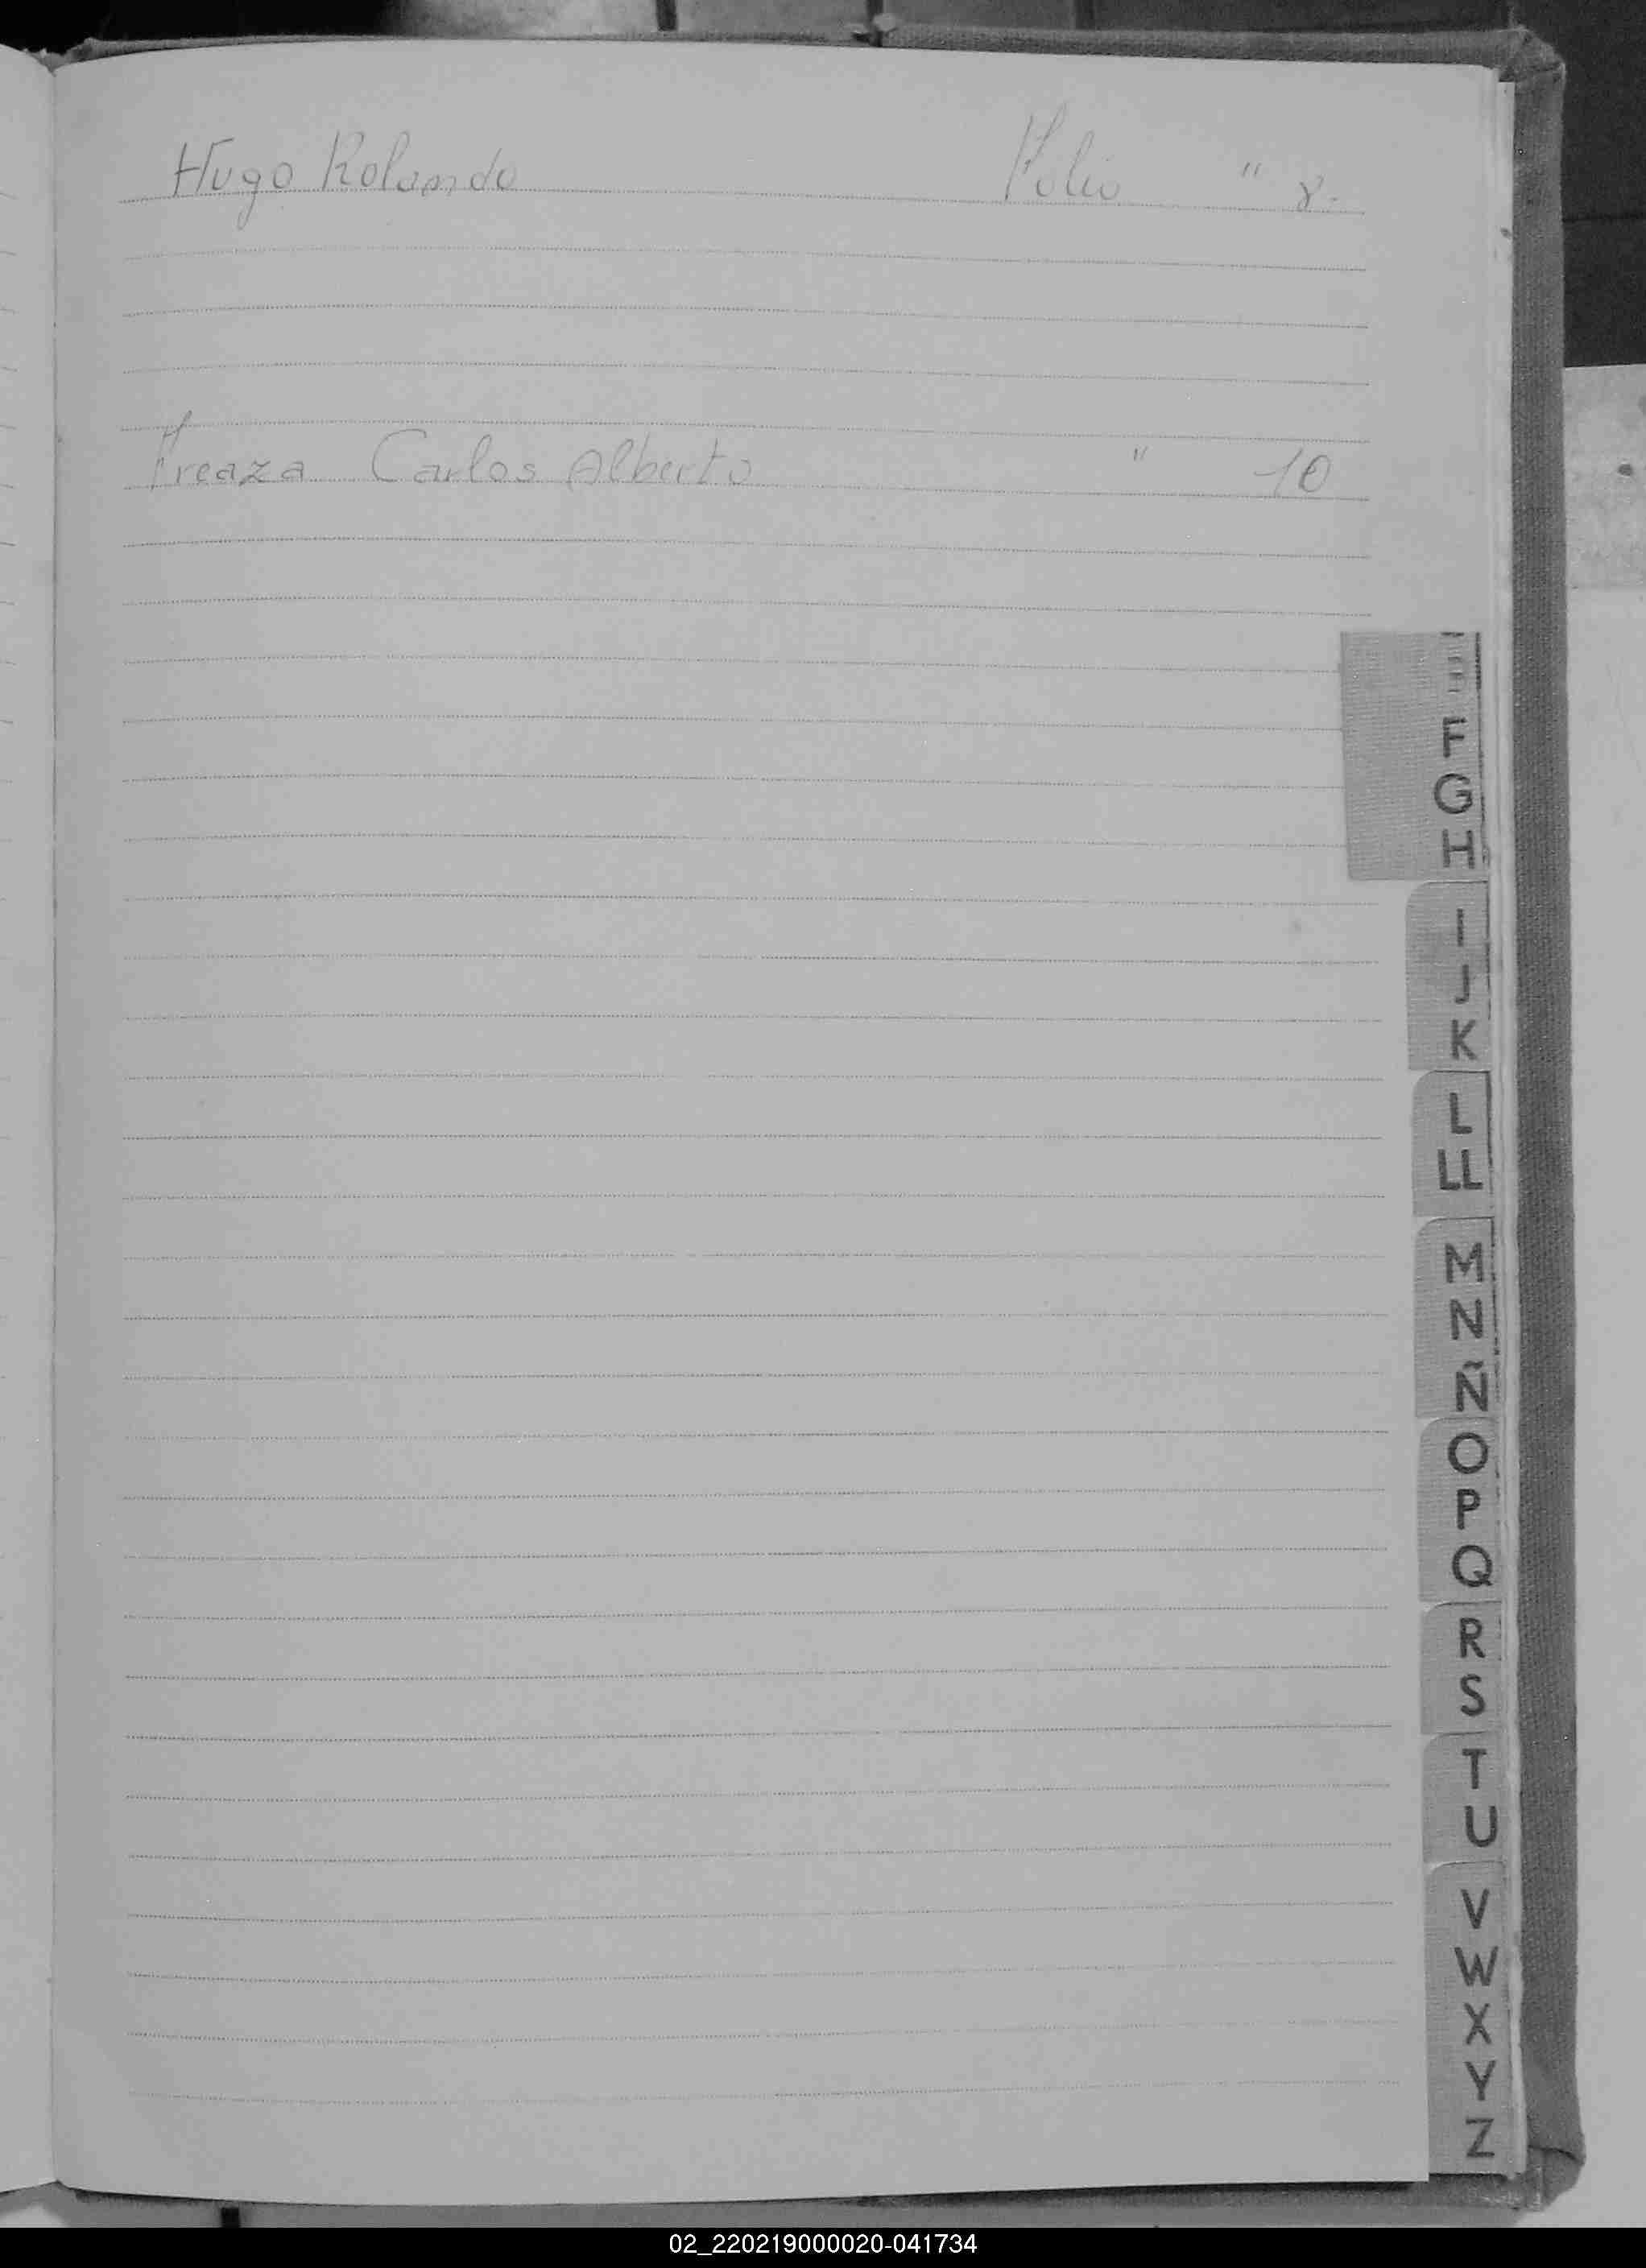 Hugo Rolando Folio " 8.
Freaza Carlos Alberto " 10
F
G
H
I
J
K
L
LL
M
N
Ñ
O
P
Q
R
S
T
U
V
W
X
Y
Z
02_220219000020-041734